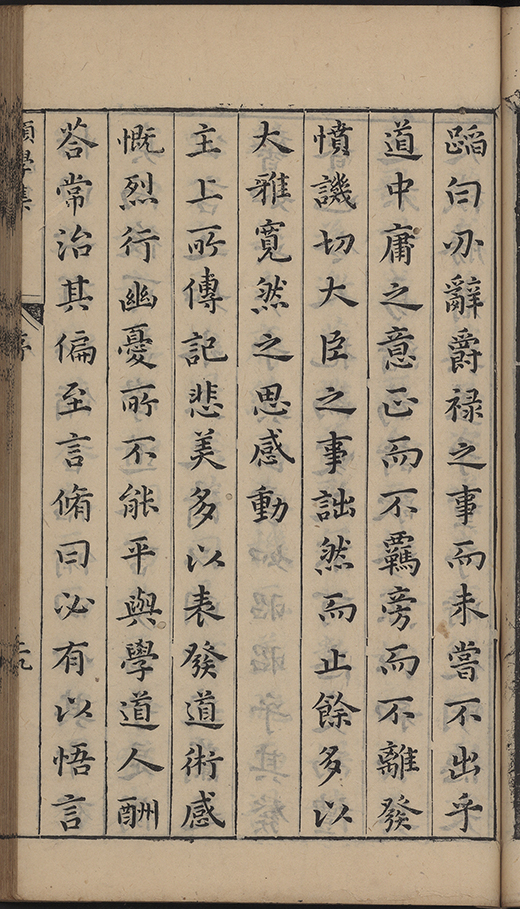 蹈白刃辭爵祿之事而未嘗不出乎
道中庸之意正而不羈旁而不離發
憤譏切大臣之事詘然而止餘多以
大雅寬然之思感動
主上所傳記悲美多以表發道術感
慨烈行幽憂所不能平與學道人酬
荅常治其偏至言脩曰必有以悟言
序